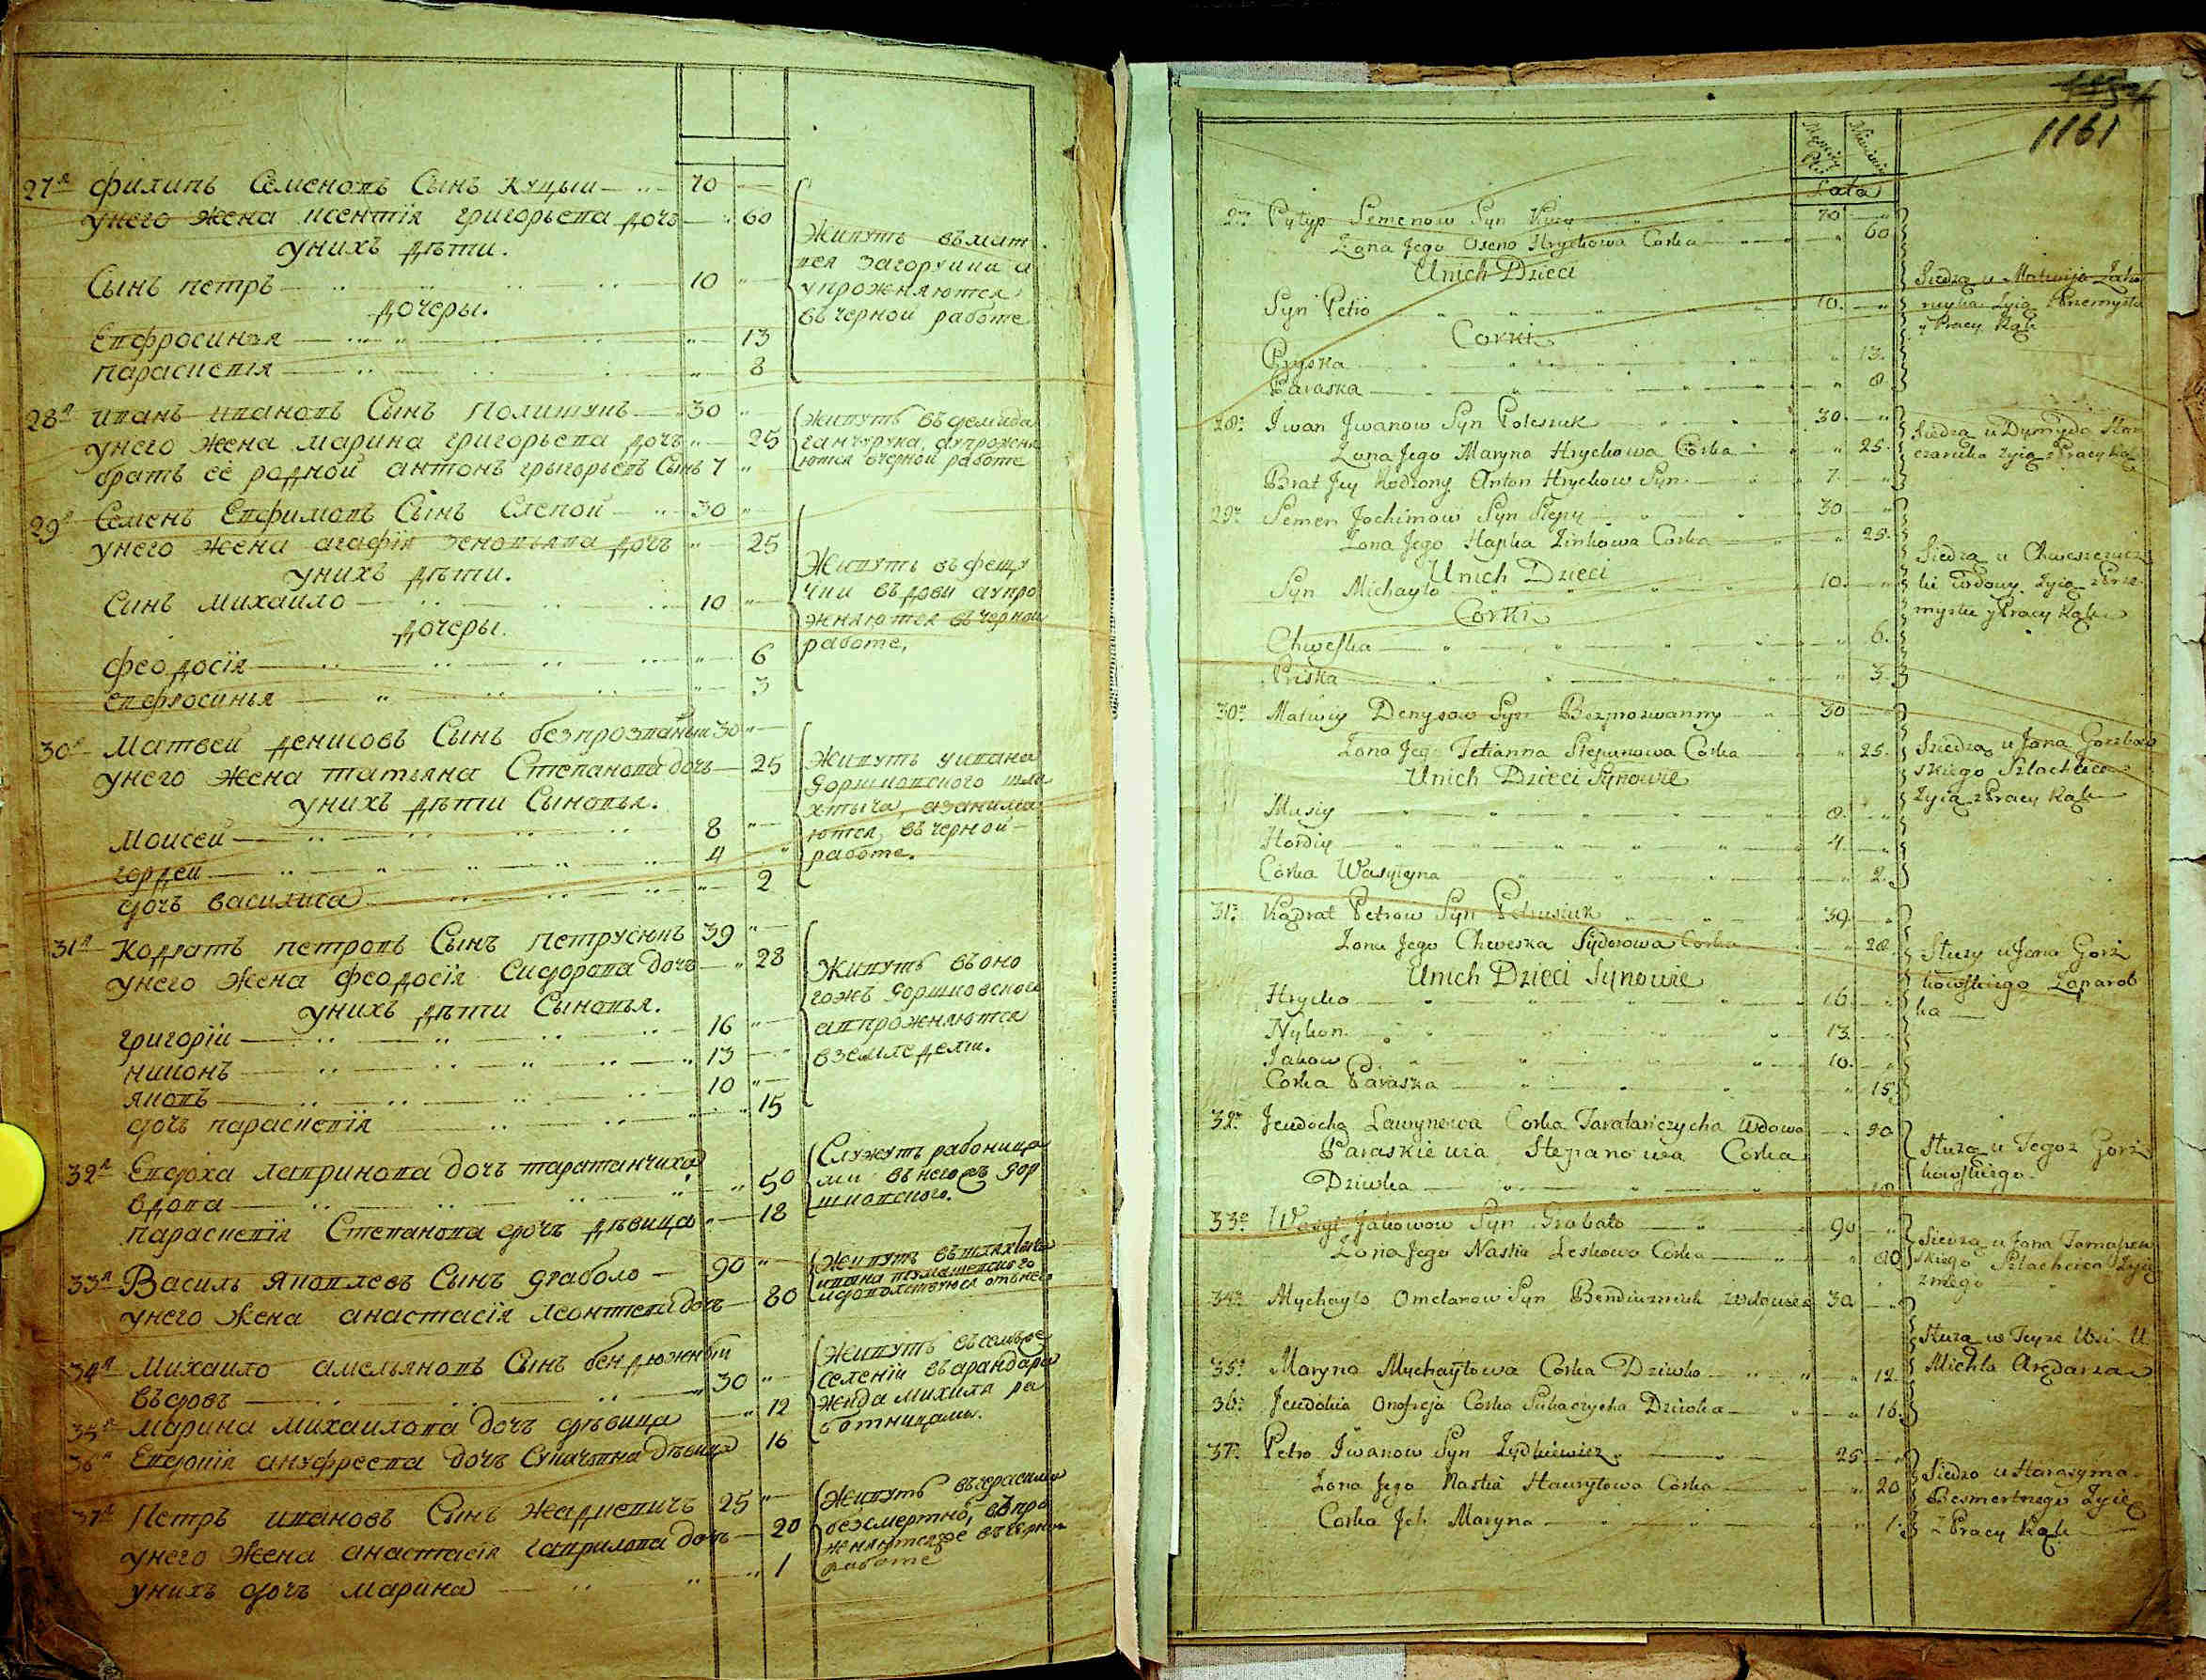 27я филипъ Семеновъ Сынъ Куцыи 70
унего жена ксентія григорьева дочь 60
унихъ дѣти.
Сынъ петръ 10
дочеры.
Евфросинья 13
параскевія 8
Живутъ въ мат
вея загорулки а
упрожняются
въ черной работе
28я иванъ ивановъ Сынъ Полишукъ 30
унего жена марина григорьева дочь 25
братъ её родной антонъ григорьевъ Сынъ 7
живутъ въ демида
ганчурука, аупрожня
ются вчерной работе
29я Семенъ Евфимовъ Сынъ Слепой 30
унего жена агафія зеновьява дочь 25
унихъ дѣти.
Синъ михайло 10
дочеры.
феодосія 6
евфросинья 3
Живутъ въ фещу
чки въдови аупро
жняются въ черной
работе.
30я Матвей денисовъ Сынъ безпрозваный 30
унего жена татьяна Степанова дочь 25
унихъ дѣти Сыновья.
моисей 8
гордей 4
дочь василиса 2
живутъ уивана
горшковского шля
хтыча, азанима
ются, въ черной
работе.
31я кодратъ петровъ Сынъ петрусюкъ 39
унего жена феодосія Сидорова дочь 28
унихъ дѣти Сыновья.
григорій 16
никонъ 13
яковъ 10
дочь параскевія 15
Живутъ въ оно
гожъ горшковского
аупрожняются
вземледели.
32я Евдоха лавринова дочь таратанчиха
вдова 50
параскевія Степанова дочь дѣвица 18
Служутъ работница
ми въ негожъ гор
шковского.
33я Василь Яковлевъ Сынъ граболо 90
унего жена анастасія леонтева дочь 80
живутъ въ шляхтича
ивана томашевского
идовольствуюся отънего
34я михайло амельяновъ Сынъ бендюжный
вдовъ 30
35я марина михайлова дочь дѣвица 12
36я Евдокія ануфреева дочь Сукачовна дѣвица 16
живутъ въ семъже
селеніи въ арандара
жида михиля ра
ботницамы.
37я Петръ ивановъ Сынъ жадкевичъ 25
унего жена анастасія гаврилова дочь 20
унихъ дочь марина 1
живутъ въ герасима
безсмертно, аупро
жняются въ черной
работе
1161
Męzczy Płci
Lata
27. Pylyp Semenow Syn Kucy 70
Zona Jego Oseno Hrychowa Corka 60
Unich Dzieci
Syn Petro 10.
Corki
Pryska 13.
Paraska 8
Siedzą u Matwija Zaho
rulka Zyią z Przemysłu
y Pracy Rąk
28. Jwan Jwanow Syn Poleszuk 30
Zona Jego Maryna Hrychowa Corka 25.
Brat Jey Rodzony Anton Hrychow Syn 7.
Siedzą u Dymyda Han
czaruka Zyią z Pracy Rąk
29. Semen Jochimow Syn Slepy 30
Zona Jego Hapka Zinkowa Corka 25.
Unich Dzieci
Syn Michayło 10.
Corki
Chweska 6.
Priska 3
Siedzą u Chweszczucz
ki Wdowy Zyią z Prze
mysłu y Pracy Rąk
30. Matwiy Denysow Syn Bezprozwanny 30
Zona Jego Tetianna Stepanowa Corka 25.
Unich Dzieci Synowie
Musiy 8.
Hordiy 4
Corka Wasylyna 2.
Siedzą u Jana Gorzkow
skiego Szlachcica
Zyią z Pracy Rąk
31. Kądrat Petrow Syn Petrusiuk 39
Zona Jego Chweska Sydorowa Corka 28.
Unich Dzieci Synowie
Hrycko 16
Nykon 13.
Jakow 10.
Corka Paraska 15
Słuzy u Jana Gorz
kowskiego Zaparob
ka
32. Jewdocha Lawrynowa Corka Taratańczycha Wdowa 50
Paraskiewia Stepanowa Corka
Dziwka 18
Słuzą u Tegoz Gorz
kowskiego
33. Wasyl Jakowow Syn Grabało 90
Zona Jego Nastia Leskowa Corka 80
Siedzą u Jana Tomaszew
skiego Szlachcica Zyią
z niego
34. Mychayło Omelanow Syn Bendiuzniuk Wdowiec 30
35. Maryna Mychayłowa Corka Dziwka 12
36. Jewdokia Onofreja Corka Sukaczycha Dziwka 16.
Słuzą w Teyze Wsi U
Michla Arędarza
37. Petro Jwanow Syn Zydkiewicz 25
Zona Jego Nastia Hawryłowa Corka 20
Corka Jch Maryna 1.
Siedzo u Harasyma
Besmertnego Zyią
z Pracy Rąk